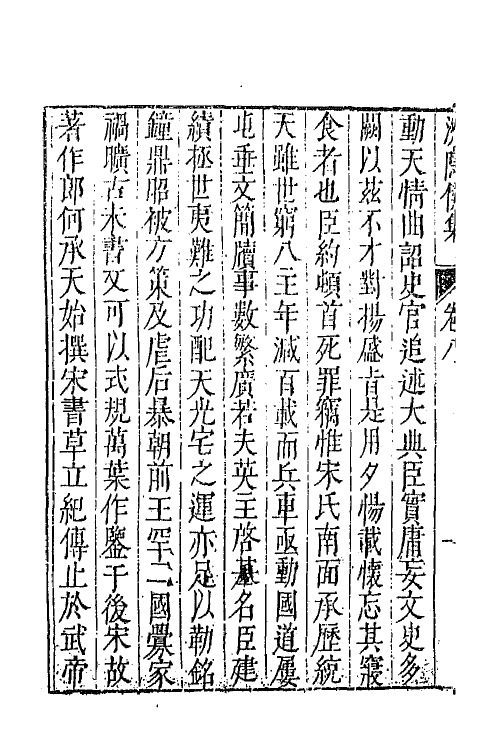 動天情曲詔史官追述大典臣實庸妄文史多
闕以茲不才對揚盛旨是用夕惕載懷忘其寢
食者也臣約頓首死罪竊惟宋氏南面承歷統
天雖世窮八主年減百載而兵車亟動國道屢
屯垂文簡牘事數繁廣若夫英主啓基名臣建
績拯世夷難之功配天光宅之運亦足以勒銘
鐘鼎昭被方策及虐后暴朝前王罕二國釁家
禍曠古未書又可以式規萬葉作鑒于後宋故
著作郎何承天始撰宋書草立紀傳止於武帝